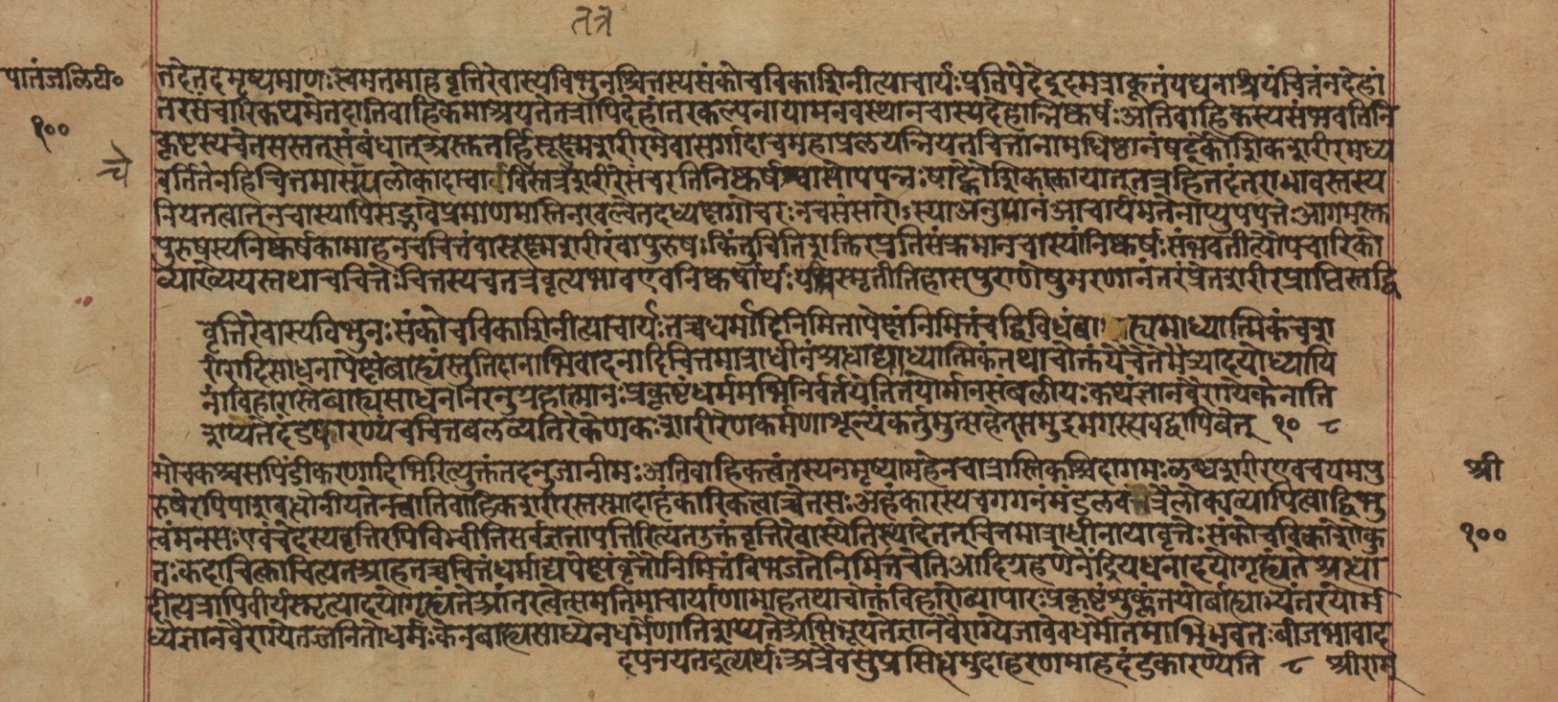 तत्र
पातंजलिटी०
१००
तदेतदमृष्यमाणः स्वमतमाह वृत्तिरेवास्य विभुनश्चित्तस्य संकोचविकाशिनीत्याचार्यः प्रतिपेदे इदमत्राकूतं यद्यनाश्रयं चित्तं न देहां
तरसंचारि कथमेतदातिवाहिकमाश्रयते तत्रापि देहांतरकल्पनायामनवस्था न चास्य देहान्निष्कर्षः अतिवाहिकस्य संभवति नि
कृष्टस्य चेतसस्तत्संबंधात् अस्तु तर्हि सूक्ष्मशरीरमेवासर्गादाच महाप्रलयन्नियतं चित्तानामधिष्ठानं षट्कौशिकशरीरमध्य
च
वर्ति तेन हि चित्तमासत्यलोकादाचावीचेस्तत्रतत्रशरीरे संचरति निष्कर्षश्चास्योपपन्नः षाट्कौशिकात्कायात् तत्र हि तदंतराभावस्तस्य
नियतत्वात् न चास्यापि सद्भावे प्रमाणमस्ति न खल्वेतदध्यक्षगोचरः न च संसारोऽस्या अनुमानं आचार्यमतेनाप्युपपत्तेः आगमस्तु
पुरुषस्य निष्कर्षकामाह न च चित्तं वा सूक्ष्मशरीरं वा पुरुषः किंतु चितिशक्तिरप्रतिसंक्रमा न चास्यां निष्कर्षः संभवतीत्यौपचारिको
व्याख्येयस्तथा च चित्तेः चित्तस्य च तत्र वृत्यभाव एव निष्कर्षार्थः स्मृतीतिहासपुराणेषु मरणानंतरं प्रेतशरीरप्राप्तिस्तद्वि
वृत्तिरेवास्य विभुनः संकोचविकाशिनीत्याचार्यः तच्च धर्मादिनिमित्तापेक्षं निमित्तं च द्विविधं बाह्यमाध्यात्मिकं च श
रीरादिसाधनापेक्षं बाह्यं स्तुतिदानाभिवादनादि चित्तमात्राधीनं श्रद्धाद्याध्यात्मिकं तथाचोक्तं ये चैते मैत्र्यादयो ध्यायि
नां विहारास्ते बाह्यसाधननिरनुग्रहात्मानः प्रकृष्टं धर्ममभिनिर्वर्तयंति तयोर्मानसं बलीयः कथं ज्ञानवैराग्ये केनाति
शय्येते दंडकारण्यं च चित्तबलव्यतिरेकेण कः शारीरेण कर्मणा शून्यं कर्तुमुत्सहेत् समुद्रमगस्त्यवद्वा पिबेत् १० ८
मोचकश्च सपिंडीकरणादिभिरित्युक्तं तदनुजानीमः अतिवाहिकत्वं तस्य न मृष्यामहे न चात्रास्ति कश्चिदागमः लब्धशरीर एव च यमपु
श्री
रुषैरपि पाशबद्धो नीयते नत्वातिवाहिकशरीरस्तस्मादाहंकारिकत्वाच्चेतसः अहंकारस्य च गगनमंडलवत्त्रैलोक्यव्यापित्वाद्विभु
त्वं मनसः एवं चेदस्य वृत्तिरपि विभ्वीति सर्वज्ञतापत्तिरित्यत उक्तं वृत्तिरेवास्येति स्यादेतत् चित्तमात्राधीनाया वृत्तेः संकोचविकाशौ कु
१००
तः कदाचित्कावित्यत आह तच्च चित्तं धर्माद्यपेक्षं वृत्तौ निमित्तं विभजते निमित्तं चेति आदिग्रहणेनेंद्रियधनादयो गृह्यंते श्रद्धा
दीत्यत्रापि वीर्यस्मृत्यादयो गृह्यंते आंतरत्वे संमतिमाचार्याणामाह तथाचोक्तं विहारो व्यापारः प्रकृष्टं शुक्लं तयोर्बाह्याभ्यंतरयोर्म
ध्ये ज्ञानवैराग्ये तज्जनितो धर्मः केन बाह्यसाध्येन धर्मेणातिशय्यते अभिभूयते ज्ञानवैराग्यजावेव धर्मौ तमभिभवतः बीजभावाद
दपनयत इत्यर्थः अत्रैव सुप्रसिद्धमुदाहरणमाह दंडकारण्येति ८ श्रीराम